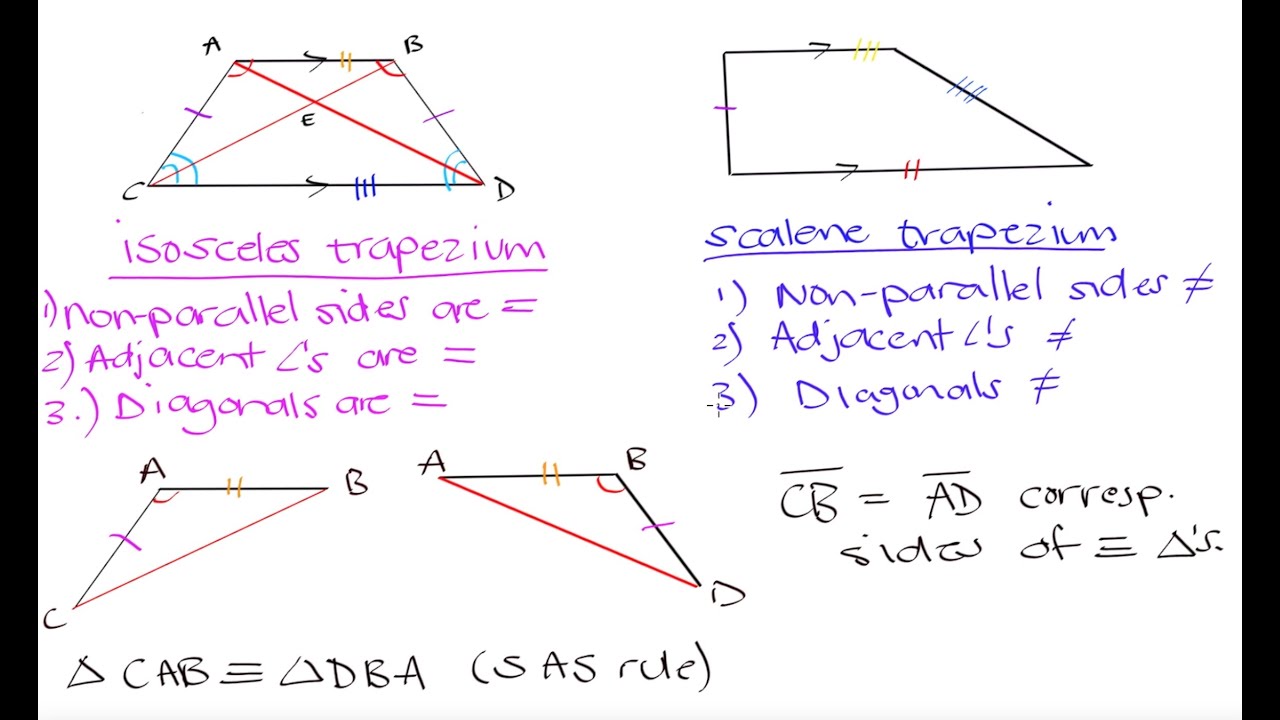 A B
E
C D
isosceles trapezium
1) Non-parallel sides are =
2) Adjacent ∠'s are =
3.) Diagonals are =
scalene trapezium
1) Non-parallel sides ≠
2) Adjacent ∠'s ≠
3) Diagonals ≠
A B
C
A B
D
CB = AD corresp.
sides of ≡ Δ's.
Δ CAB ≡ ΔDBA (SAS rule)